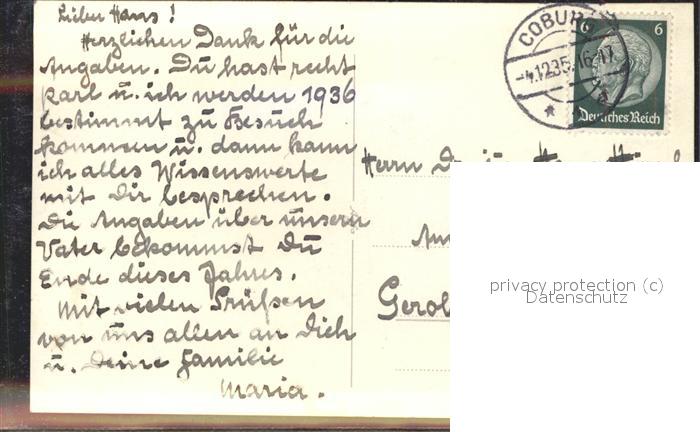 Lieber Hans!
Herzlichen Dank für die
Angaben. Du hast recht
Karl u. ich werden 1936
bestimmt zu Besuch
kommen u. dann kann
ich alles Wissenswerte
mit Dir besprechen.
Die Angaben über unsern
Vater bekommst Du
Ende dieses Jahres.
Mit vielen Grüßen
von uns allen an Dich
u. Deine Familie
Maria.
COBURG
-4.12.35.16-17
6 6
Deutsches Reich
Herrn
Gerol
privacy protection (c)
Datenschutz